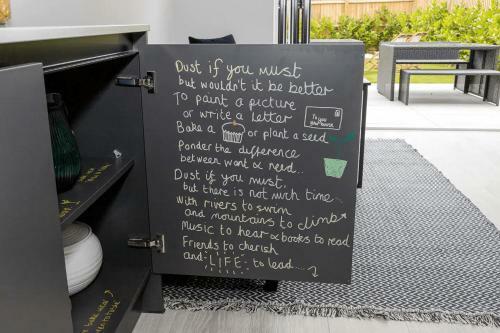 Dust if you must
but wouldn't it be better
To paint a picture
or write a letter
Bake a or plant a seed
Ponder the difference
between want & need..
Dust if you must,
but there is not much time
With rivers to swim
and mountains to climb
Music to hear & books to read
Friends to cherish
and LIFE to lead....